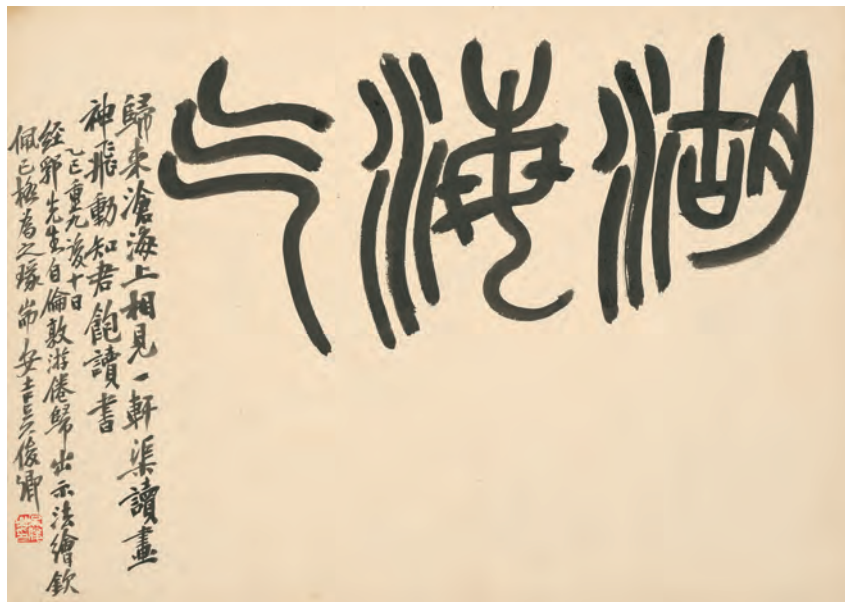 湖海气
歸來滄海上相見一軒渠讀畫
神飛動知君飽讀書
乙巳重九後十日
經郛先生自倫敦游倦歸出示法繪欽
佩已極為之瑑耑安吉吳俊卿